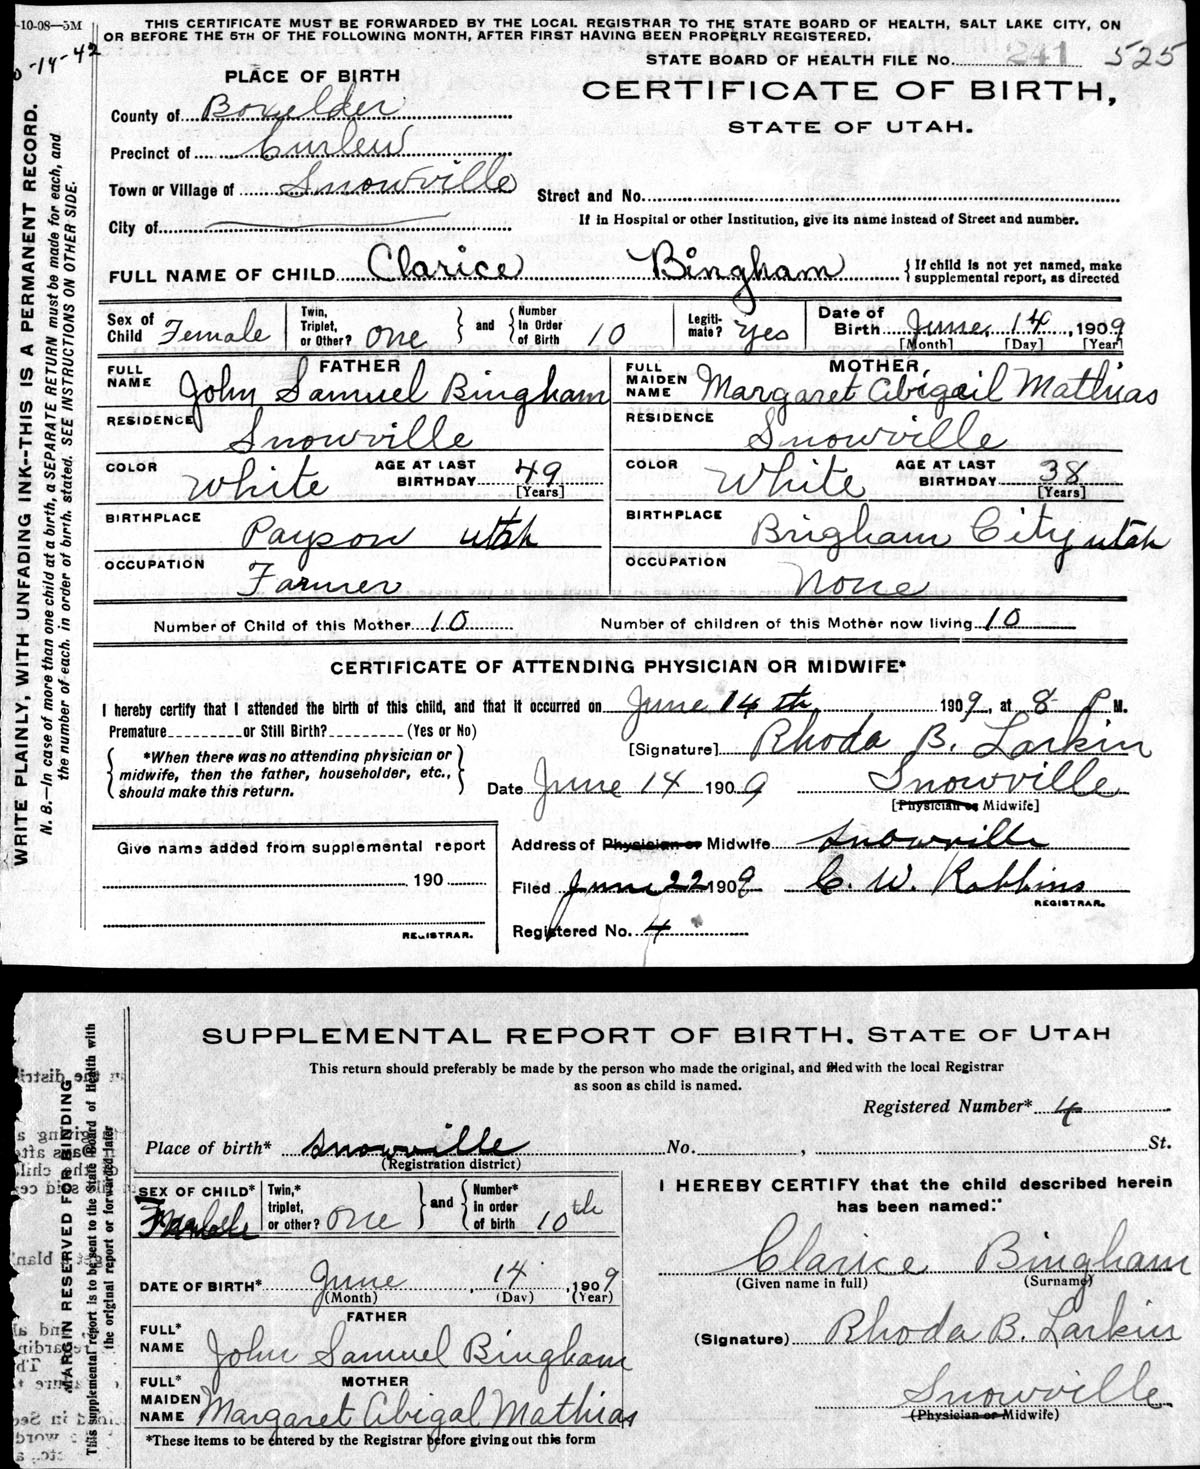 -10-08—5M
THIS CERTIFICATE MUST BE FORWARDED BY THE LOCAL REGISTRAR TO THE STATE BOARD OF HEALTH, SALT LAKE CITY, ON
OR BEFORE THE 5TH OF THE FOLLOWING MONTH, AFTER FIRST HAVING BEEN PROPERLY REGISTERED.
-14-42
STATE BOARD OF HEALTH FILE No. 241 525
PLACE OF BIRTH
CERTIFICATE OF BIRTH,
STATE OF UTAH.
County of Boxelder
Precinct of Curlew
Town or Village of Snowville
Street and No.
City of
If in Hospital or other Institution, give its name instead of Street and number.
FULL NAME OF CHILD Clarice Bingham
{If child is not yet named, make
supplemental report, as directed
Sex of Child Female
Twin, Triplet, or Other? One
and
Number In Order of Birth 10
Legiti-mate? Yes
Date of Birth June 14, 1909
[Month] [Day] [Year]
FATHER
FULL NAME John Samuel Bingham
MOTHER
FULL MAIDEN NAME Margaret Abigail Mathias
RESIDENCE Snowville
RESIDENCE Snowville
COLOR White AGE AT LAST BIRTHDAY 49 [Years]
COLOR White AGE AT LAST BIRTHDAY 38 [Years]
BIRTHPLACE Payson Utah
BIRTHPLACE Brigham City Utah
OCCUPATION Farmer
OCCUPATION None
Number of Child of this Mother 10 Number of children of this Mother now living 10
CERTIFICATE OF ATTENDING PHYSICIAN OR MIDWIFE*
I hereby certify that I attended the birth of this child, and that it occurred on June 14th, 1909, at 8 P M.
Premature or Still Birth? (Yes or No)
[Signature] Rhoda B. Larkin
*When there was no attending physician or
midwife, then the father, householder, etc.,
should make this return.
Date June 14 1909 Snowville
[Physician or Midwife]
Give name added from supplemental report
190
REGISTRAR.
Address of Physician or Midwife Snowville
Filed June 22 1909 C. W. Robbins
REGISTRAR.
Registered No. 4
WRITE PLAINLY, WITH UNFADING INK--THIS IS A PERMANENT RECORD.
N. B.—In case of more than one child at a birth, a SEPARATE RETURN must be made for each, and
the number of each, in order of birth, stated. SEE INSTRUCTIONS ON OTHER SIDE.
SUPPLEMENTAL REPORT OF BIRTH, STATE OF UTAH
This return should preferably be made by the person who made the original, and filed with the local Registrar
as soon as child is named.
Registered Number* 4
Place of birth* Snowville No. , St.
(Registration district)
SEX OF CHILD* Female
Twin,* triplet, or other? One
and
Number* in order of birth 10th
I HEREBY CERTIFY that the child described herein
has been named:
Clarice Bingham
(Given name in full) (Surname)
DATE OF BIRTH* June 14, 1909
(Month) (Day) (Year)
FATHER
FULL* NAME John Samuel Bingham
(Signature) Rhoda B. Larkin
MOTHER
FULL* MAIDEN NAME Margaret Abigal Mathias
Snowville
(Physician or Midwife)
*These items to be entered by the Registrar before giving out this form
MARGIN RESERVED FOR BINDING
This supplemental report is to be sent to the State Board of Health with
the original report or forwarded later